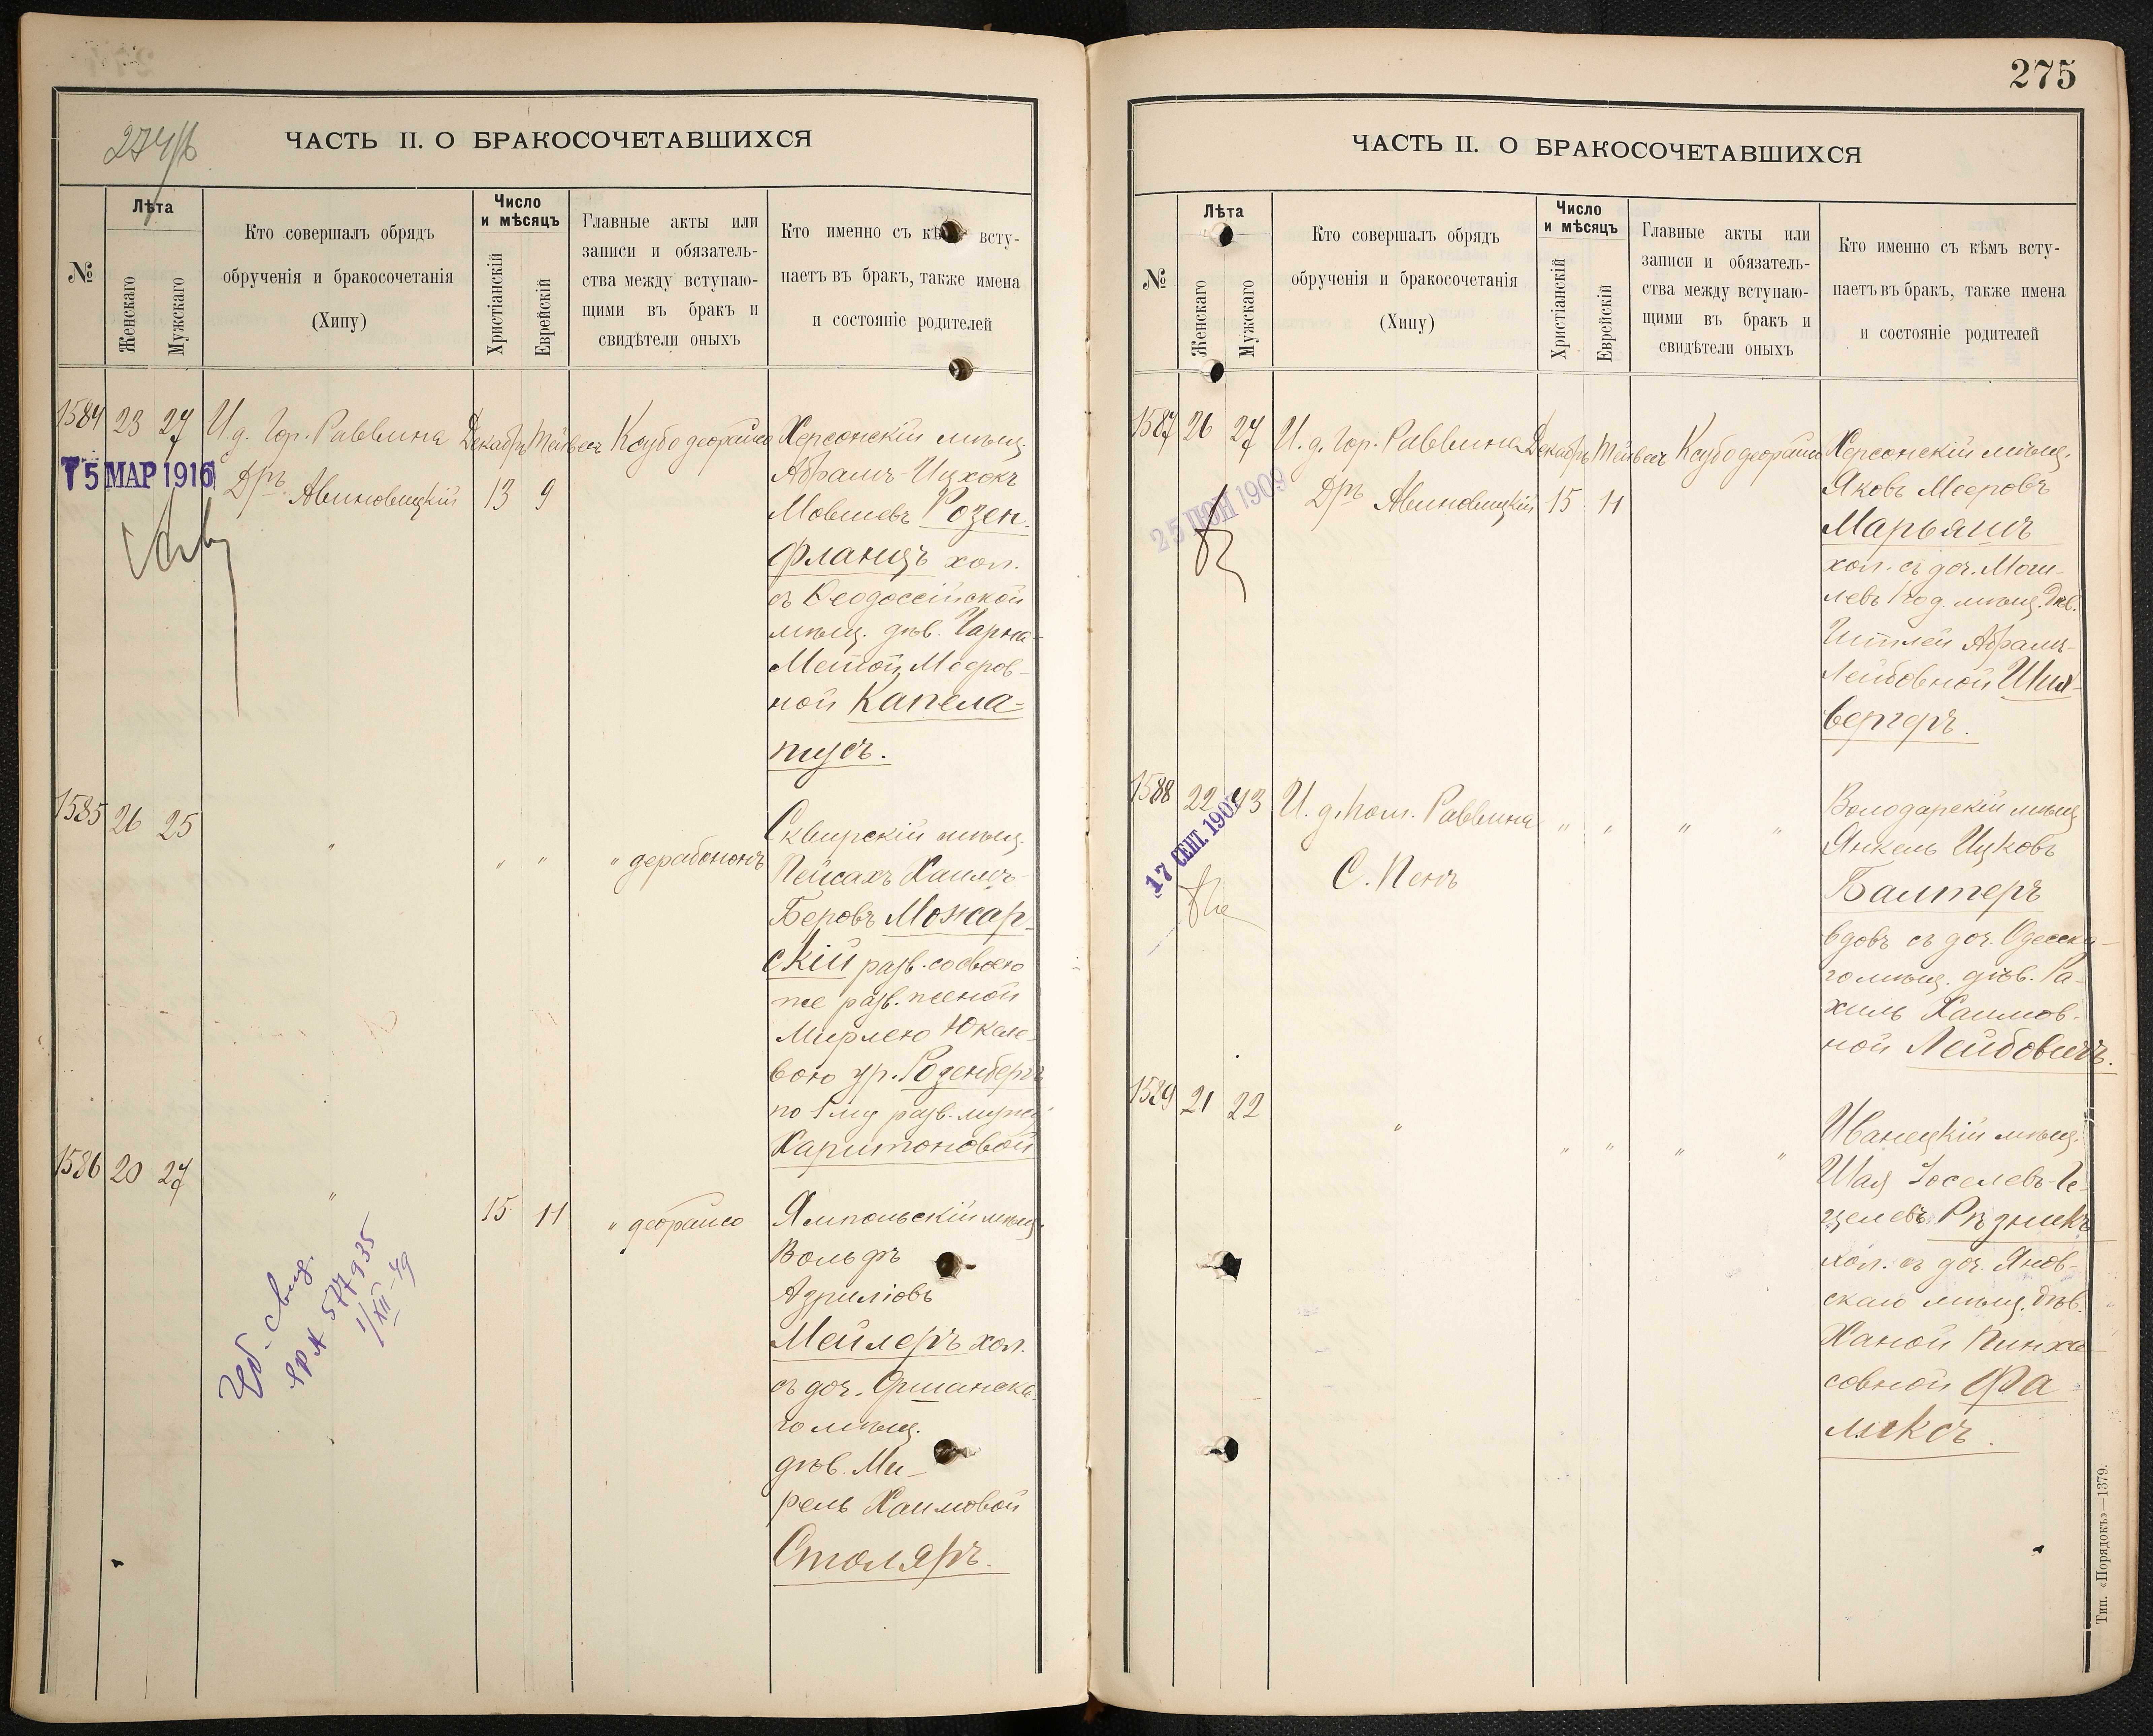 274/б
ЧАСТЬ II. О БРАКОСОЧЕТАВШИХСЯ
№
Лѣта
Женскаго
Мужскаго
Кто совершалъ обрядъ
обрученія и бракосочетанія
(Хипу)
Число
и мѣсяцъ
Христіанскій
Еврейскій
Главные акты или
записи и обязатель-
ства между вступаю-
щими въ бракъ и
свидѣтели оныхъ
Кто именно съ кѣмъ всту-
паетъ въ бракъ, также имена
и состояніе родителей
1584 23 27
И. д. Гор. Раввина
Дръ Авиновицкій
Декабрь Тейвесъ
13 9
Ксубо деорайсо
15 МАР 1916
Херсонскій мѣщ.
Абрамъ-Ицхокъ
Мовшевъ Розен-
фланцъ хол.
съ Ѳеодосійской
мѣщ. дѣв. Чарна-
Мееров-
ной Капела-
пусъ.
1585 26 25
"
" "
" дерабононъ
Сквирскій мѣщ.
Пейсахъ Хаимъ-
Беровъ Можар-
скій разв. со своею
же разв. женой
Мирлею Юкеле-
вою ур. Розенбергъ
по 1му разв. мужу
Харитоновой
1586 20 27
"
15 11
" деорайсо
Ямпольскій мѣщ.
Вольфъ
Азриліовъ
Мейлеръ хол.
съ доч. Оршанска-
го мѣщ.
дѣв. Ми-
рель Хаимовой
Столяръ.
577935
1/XII-49
275
ЧАСТЬ II. О БРАКОСОЧЕТАВШИХСЯ
№
Лѣта
Женскаго
Мужскаго
Кто совершалъ обрядъ
обрученія и бракосочетанія
(Хипу)
Число
и мѣсяцъ
Христіанскій
Еврейскій
Главные акты или
записи и обязатель-
ства между вступаю-
щими въ бракъ и
свидѣтели оныхъ
Кто именно съ кѣмъ всту-
паетъ въ бракъ, также имена
и состояніе родителей
1587 26 27
И. д. Гор. Раввина
Дръ Авиновицкій
Декабрь Тейвесъ
15 11
Ксубо деорайсо
25 ІЮН 1909
Херсонскій мѣщ.
Яковъ Мееровъ
Марьямъ
хол. съ доч. Моги-
левъ Под. мѣщ. дѣв.
Абрамъ-
Лейбовной Шил-
бергеръ.
1588 22 43
И. д. Пом. Раввина
С. Пенъ
" "
" "
17 СЕНТ. 1907
Володарскій мѣщ.
Янкель Ицковъ
Балтеръ
вдовъ съ доч. Одесска-
го мѣщ. дѣв. Ра-
хиль Хаимов-
ной Лейбовичъ.
1589 21 22
"
" "
" "
Иванецкій мѣщ.
Шая Іоселевъ-Ге-
целевъ Рѣзникъ
хол. съ доч. Янов-
скаго мѣщ. дѣв.
Ханой Пинха-
совной Фа-
ликсъ.
Тип. «Порядокъ»—1379.